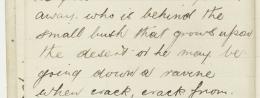 away. who is behind the
small bush that grows upon
the desert or he may be
going down a ravine
when crack, crack from.